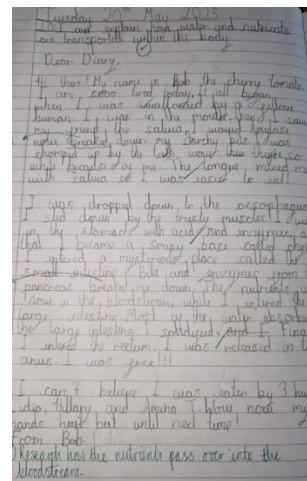 Tuesday 20th May 2025
I can explain how water and nutrients
are transported within the body
Dear Diary,
Hi there! My name is Bob the cherry tomato.
I am so tired today, it all began
when I was swallowed by a yellow
human. I was in the mouth, then I saw
my friend the saliva,
down my starchy bits. I was
chomped up by the teeth, wow so
white because of me. The tongue mixed me
with saliva so I was easier to eat!
I was dropped down, to the oesophagus
I slid down by the trusty muscles! I
in the stomach with acid and enzymes,
that I became a soupy base called
I entered a mysterious place called the
small intestine. Bile and enzymes from
pancreas breaked me down. The nutrients
now in the bloodstream, while I entered the
large intestine. Most of the water absorb
the large intestine I solidified. And I
I entered the rectum. I was released in
anus I was free!!!
I can't believe I was eaten by 3
Hillary and Amina! Wow now my
hands hurt but until next time!
From Bob.
Research how the nutrients pass over into the
bloodstream.